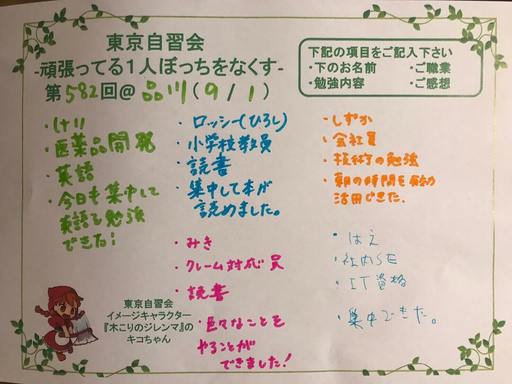 東京自習会
-頑張ってる1人ぼっちをなくす-
第582回@品川(9/1)
下記の項目をご記入下さい
・下のお名前 ・ご職業
・勉強内容 ・ご感想
・けい
・医薬品開発
・英語
・今日も集中して
英語を勉強
できた!
・ロッシー(ひろし)
・小学校教員
・読書
・集中して本が
読めました。
・しずか
・会社員
・技術の勉強
・朝の時間を有効
活用できた.
・みき
・クレーム対応員
・読書
・色々なことを
やることが
できました!
・はえ
・社内SE
・IT資格
・集中できた。
東京自習会
イメージキャラクター
『木こりのジレンマ』の
キコちゃん